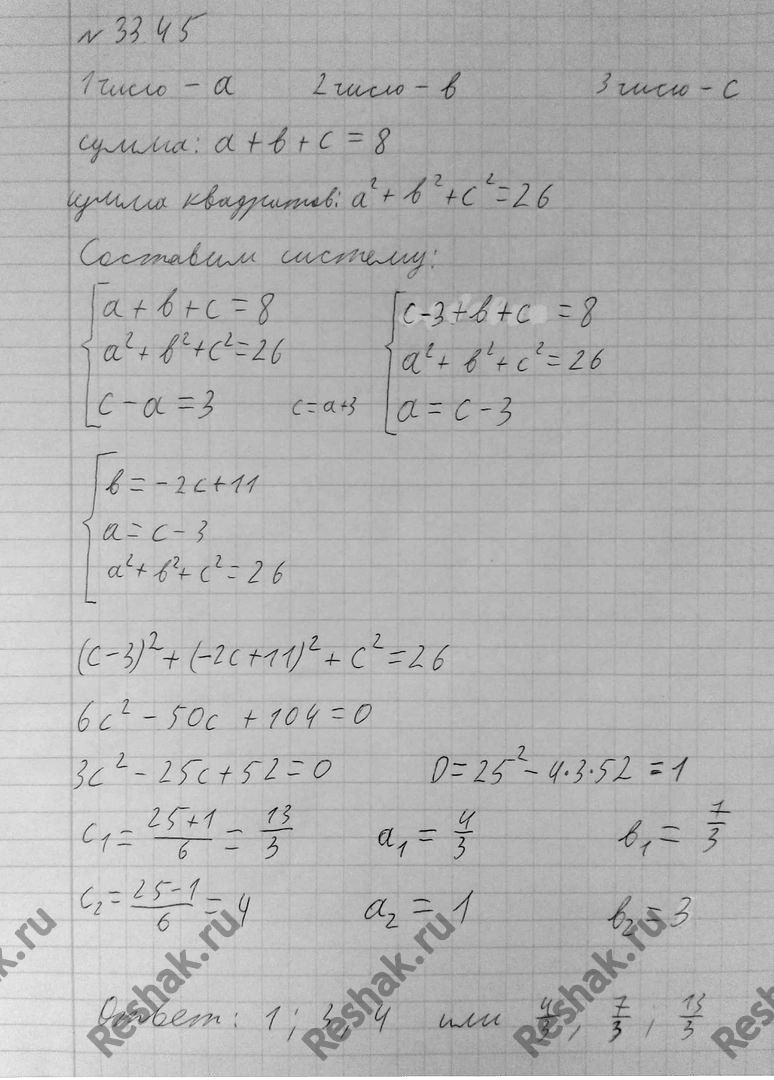 № 33.45
1 число - a 2 число - в 3 число - c
сумма: a + в + c = 8
сумма квадратов: a² + в² + c² = 26
Составим систему:
{ a + в + c = 8 { c - 3 + в + c = 8
a² + в² + c² = 26 a² + в² + c² = 26
c - a = 3 c = a + 3 a = c - 3
{ в = -2c + 11
a = c - 3
a² + в² + c² = 26
(c - 3)² + (-2c + 11)² + c² = 26
6c² - 50c + 104 = 0
3c² - 25c + 52 = 0 D = 25² - 4·3·52 = 1
c₁ = (25+1)/6 = 13/3 a₁ = 4/3 в₁ = 7/3
c₂ = (25-1)/6 = 4 a₂ = 1 в₂ = 3
Ответ: 1; 3; 4 или 4/3; 7/3; 13/3
Reshak.ru Reshak.ru Reshak.ru